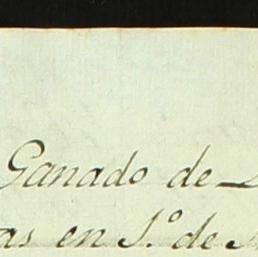 Ganado de
as en 1.º de